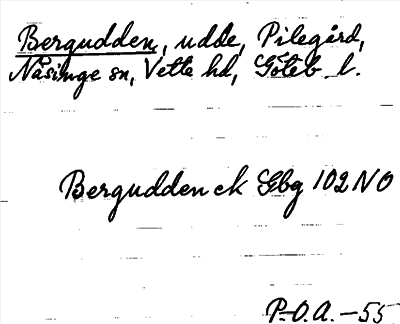 Bergudden, udde, Pilegård,
Näsinge sn, Vette hd, Göteb. l.
Bergudden ek Gbg 102 NO
P.O.A. -55